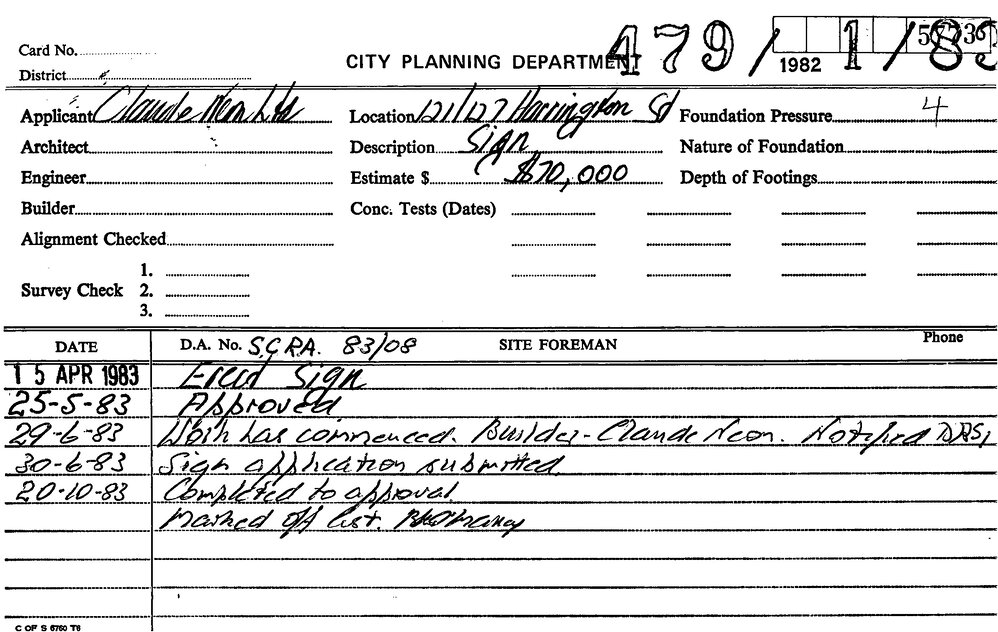 Card No.
District
CITY PLANNING DEPARTMENT 479/1/83
1982
Applicant Claude Neon Ltd Location 121/127 Harrington St Foundation Pressure 4
Architect Description Sign Nature of Foundation
Engineer Estimate $ $70,000 Depth of Footings
Builder Conc. Tests (Dates)
Alignment Checked
1.
Survey Check 2.
3.
DATE D.A. No. S.C.R.A. 83/08 SITE FOREMAN Phone
15 APR 1983 Erect Sign
25-5-83 Approved
29-6-83 Work has commenced. Builder - Claude Neon. Notified
30-6-83 Sign application submitted
20-10-83 Completed to approval
Marked off list.
C OF S 6760 T6